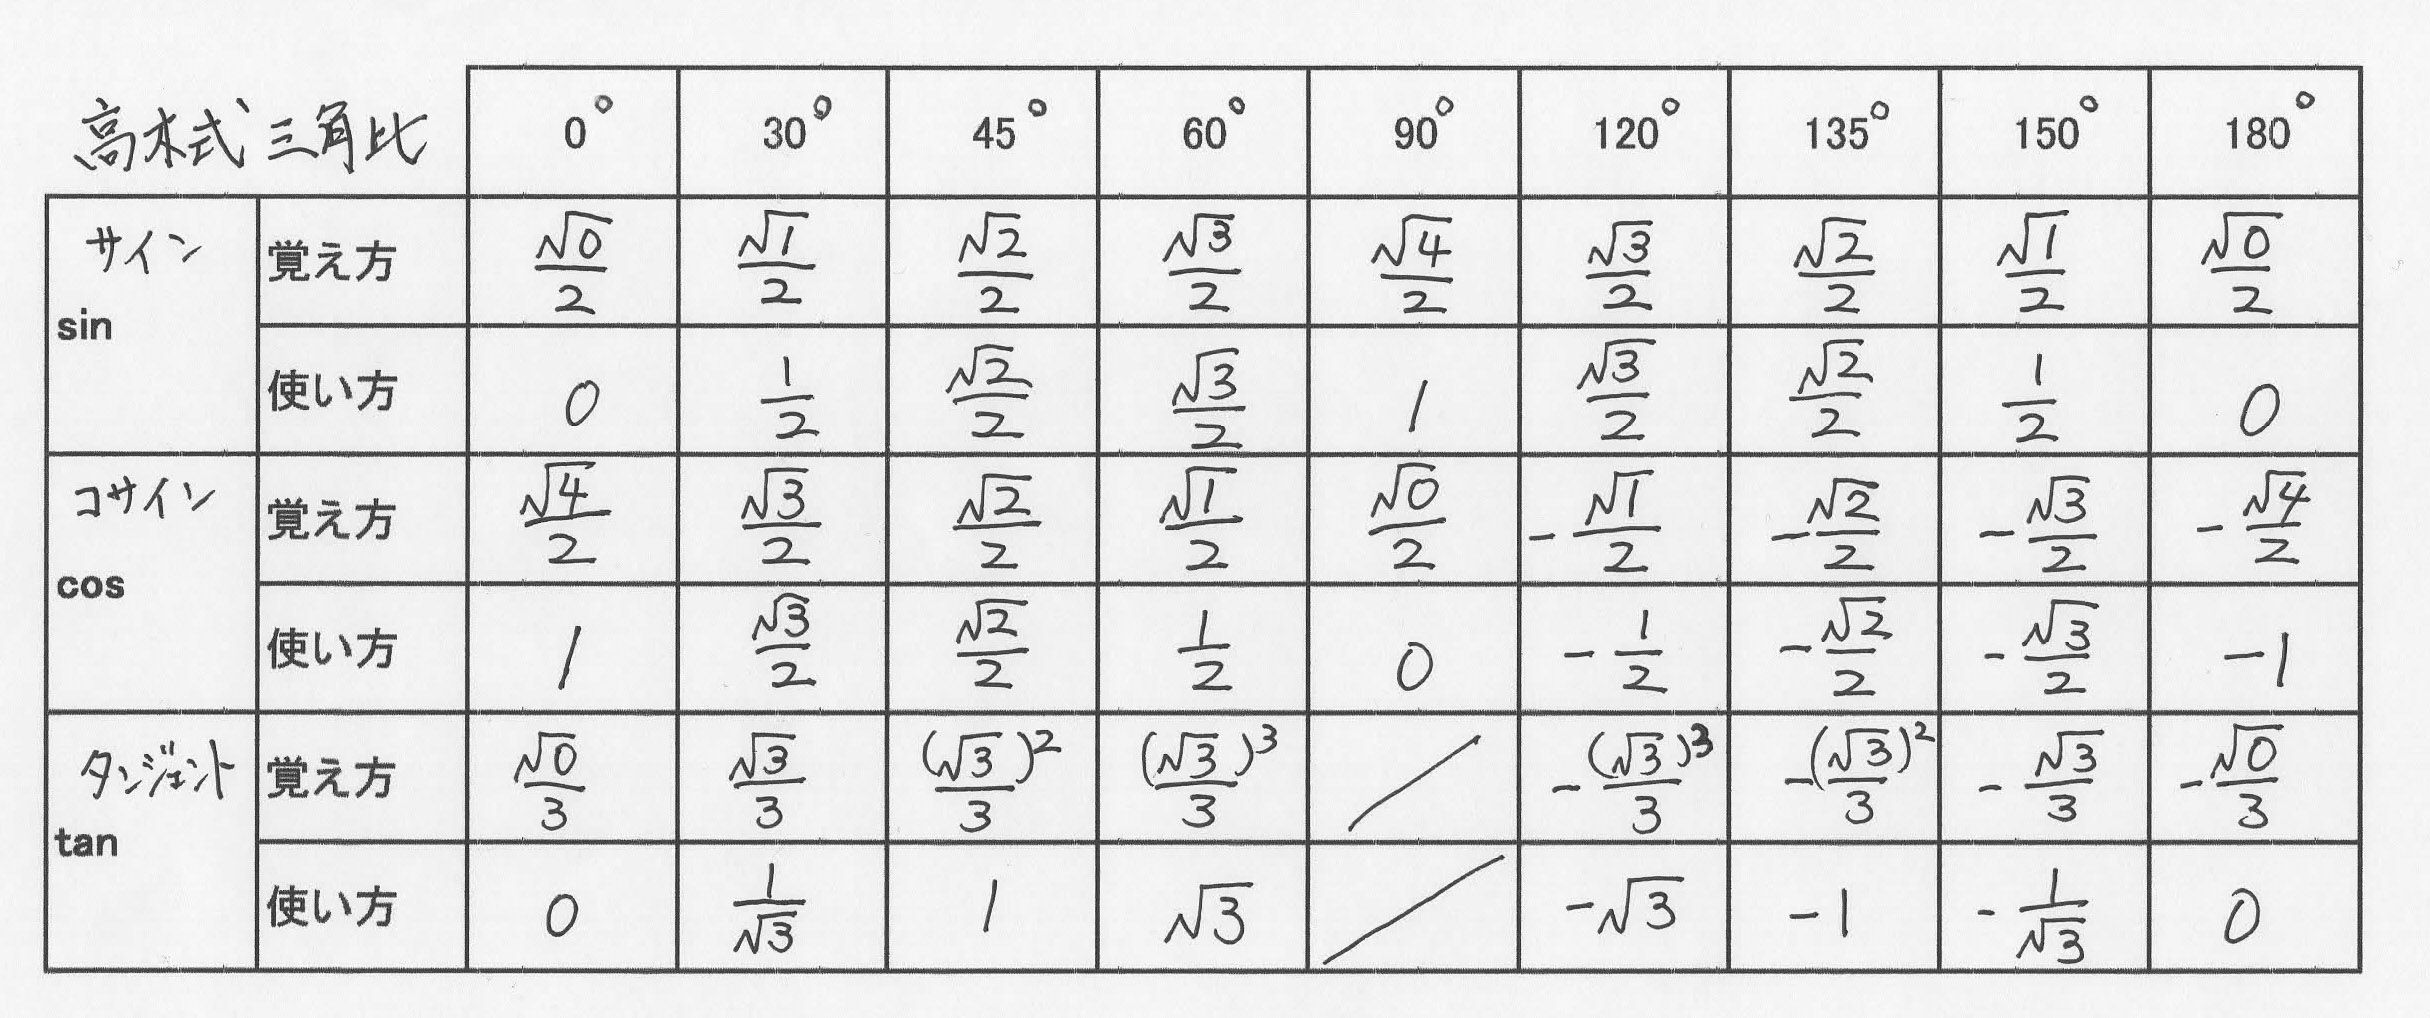 高木式 三角比 0° 30° 45° 60° 90° 120° 135° 150° 180°
サイン sin 覚え方 √0/2 √1/2 √2/2 √3/2 √4/2 √3/2 √2/2 √1/2 √0/2
使い方 0 1/2 √2/2 √3/2 1 √3/2 √2/2 1/2 0
コサイン cos 覚え方 √4/2 √3/2 √2/2 √1/2 √0/2 -√1/2 -√2/2 -√3/2 -√4/2
使い方 1 √3/2 √2/2 1/2 0 -1/2 -√2/2 -√3/2 -1
タンジェント tan 覚え方 √0/3 √3/3 (√3)²/3 (√3)³/3 / -(√3)³/3 -(√3)²/3 -√3/3 -√0/3
使い方 0 1/√3 1 √3 / -√3 -1 -1/√3 0